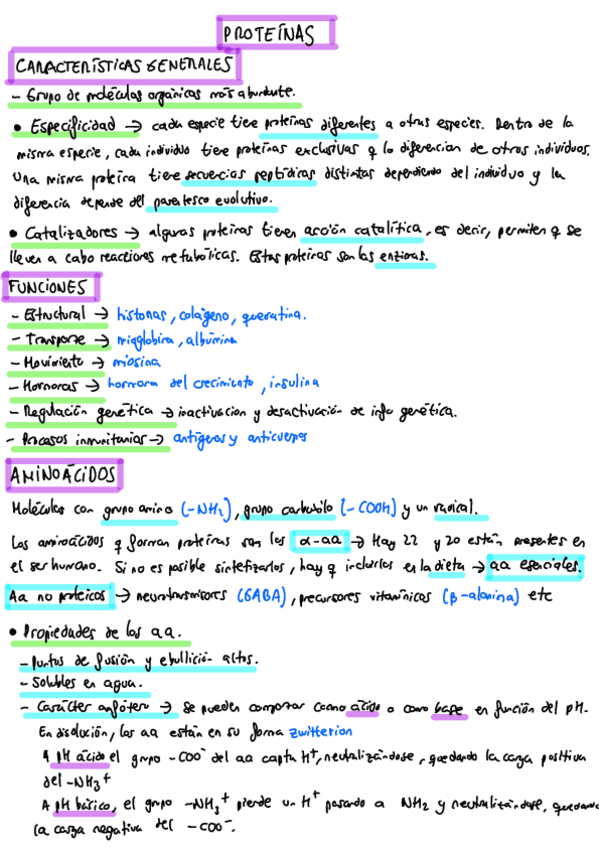 PROTEÍNAS
CARACTERÍSTICAS GENERALES
- Grupo de moléculas orgánicas más abundante.
• Especificidad → cada especie tiene proteínas diferentes a otras especies. Dentro de la
misma especie, cada individuo tiene proteínas exclusivas q lo diferencian de otros individuos.
Una misma proteína tiene secuencias peptídicas distintas dependiendo del individuo y la
diferencia depende del parentesco evolutivo.
• Catalizadores → algunas proteínas tienen acción catalítica, es decir, permiten q se
lleven a cabo reacciones metabólicas. Estas proteínas son las enzimas.
FUNCIONES
- Estructural → histonas, colágeno, queratina.
- Transporte → mioglobina, albúmina
- Movimiento → miosina
- Hormonas → hormona del crecimiento, insulina
- Regulación genética → inactivacion y desactivación de info genética.
- Procesos inmunitarios → antígenos y anticuerpos
AMINOÁCIDOS
Moléculas con grupo amino (-NH2), grupo carboxilo (-COOH) y un radical.
Los aminoácidos q forman proteínas son los α-aa → Hay 22 y 20 están presentes en
el ser humano. Si no es posible sintetizarlos, hay q incluirlos en la dieta → aa esenciales.
Aa no proteicos → neurotransmisores (GABA), precursores vitamínicos (β-alanina) etc
• Propiedades de los aa.
- Puntos de fusión y ebullición altos.
- Solubles en agua.
- Carácter anfótero → se pueden comportar como ácido o como base en función del pH.
En disolución, los aa están en su forma zwitterion
A pH ácido el grupo -COO⁻ del aa capta H⁺, neutralizándose, quedando la carga positiva
del -NH3⁺
A pH básico, el grupo -NH3⁺ pierde un H⁺ pasando a NH2 y neutralizándose, quedando
la carga negativa del -COO⁻.